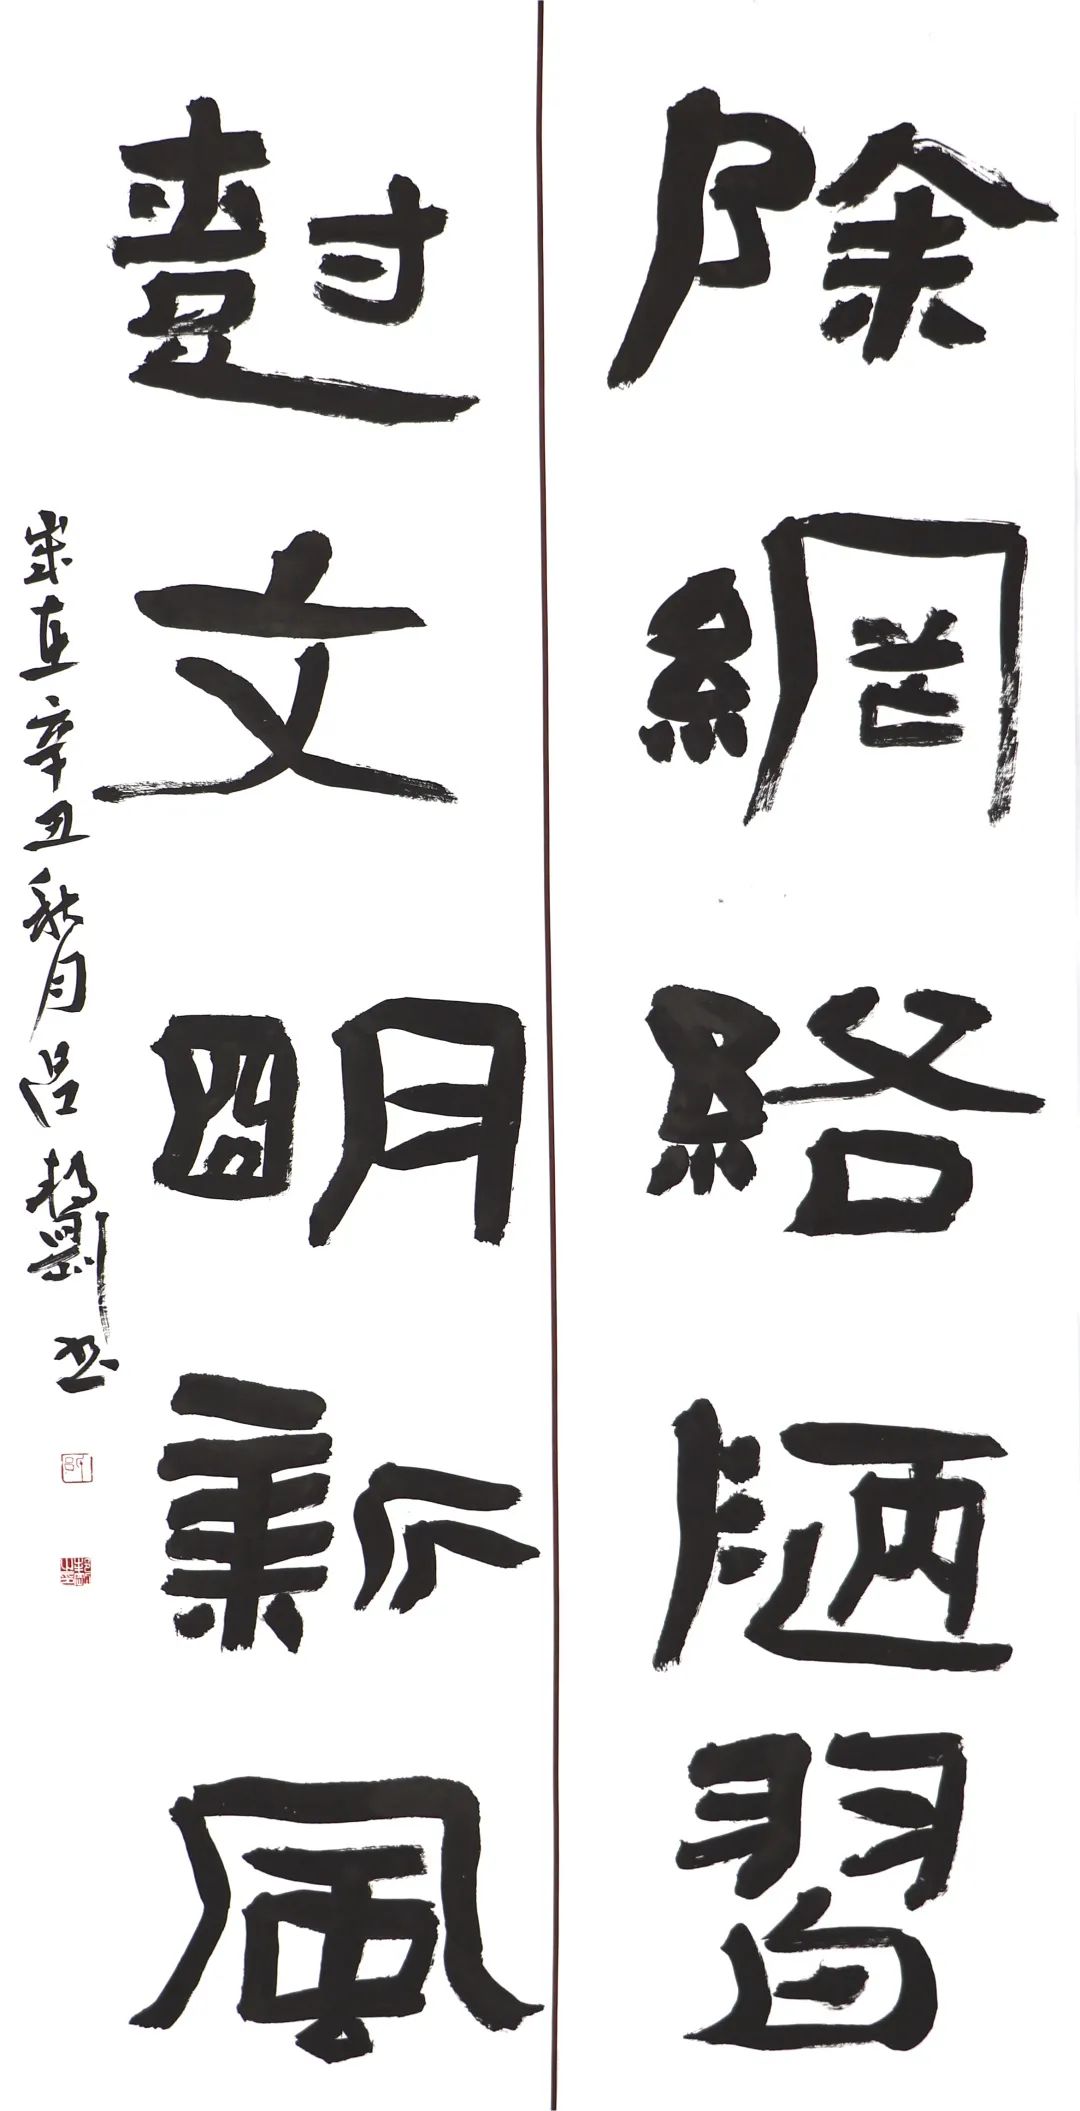 除網絡陋習
尌文明新風
歲在辛丑秋月呂
書